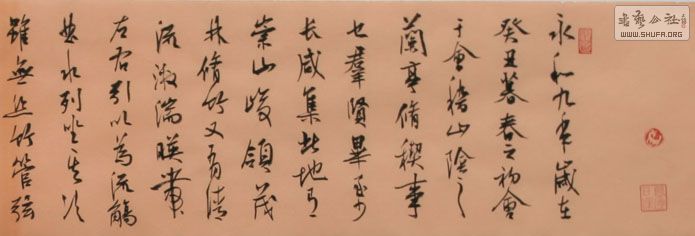 永和九年歲在
癸丑暮春之初會
于會稽山陰之
蘭亭脩稧事
也羣賢畢至少
長咸集此地有
崇山峻領茂
林脩竹又有清
流激湍暎帶
左右引以為流觴
曲水列坐其次
雖無絲竹管弦
書藝公社
WWW.SHUFA.ORG